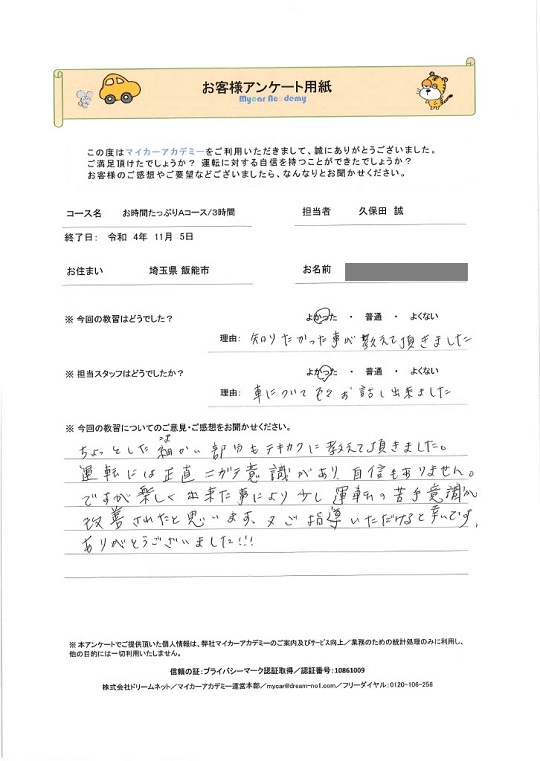 お客様アンケート用紙
Mycar Academy
この度はマイカーアカデミーをご利用いただきまして、誠にありがとうございました。
ご満足頂けたでしょうか？ 運転に対する自信を持つことができたでしょうか？
お客様のご感想やご要望などございましたら、なんなりとお聞かせください。
コース名 お時間たっぷりAコース/3時間 担当者 久保田 誠
終了日： 令和 4年 11月 5日
お住まい 埼玉県 飯能市 お名前
※ 今回の教習はどうでした？ よかった ・ 普通 ・ よくない
理由： 知りたかった事が教えて頂きました
※ 担当スタッフはどうでしたか？ よかった ・ 普通 ・ よくない
理由： 車について お話し出来ました
※ 今回の教習についてのご意見・ご感想をお聞かせください。
ちょっとした細かい部分もテキカクに教えて頂きました。
運転には正直ニガテ意識があり、自信もありません。
ですが楽しく出来た事により少し運転の苦手意識が
改善されたと思います、又ご指導いただけると幸いです。
ありがとうございました!!!
※ 本アンケートでご提供頂いた個人情報は、弊社マイカーアカデミーのご案内及びサービス向上／業務のための統計処理のみに利用し、
他の目的には一切利用いたしません。
信頼の証：プライバシーマーク認証取得／認証番号：10861009
株式会社ドリームネット／マイカーアカデミー運営本部／mycar@dream-no1.com／フリーダイヤル：0120-106-256